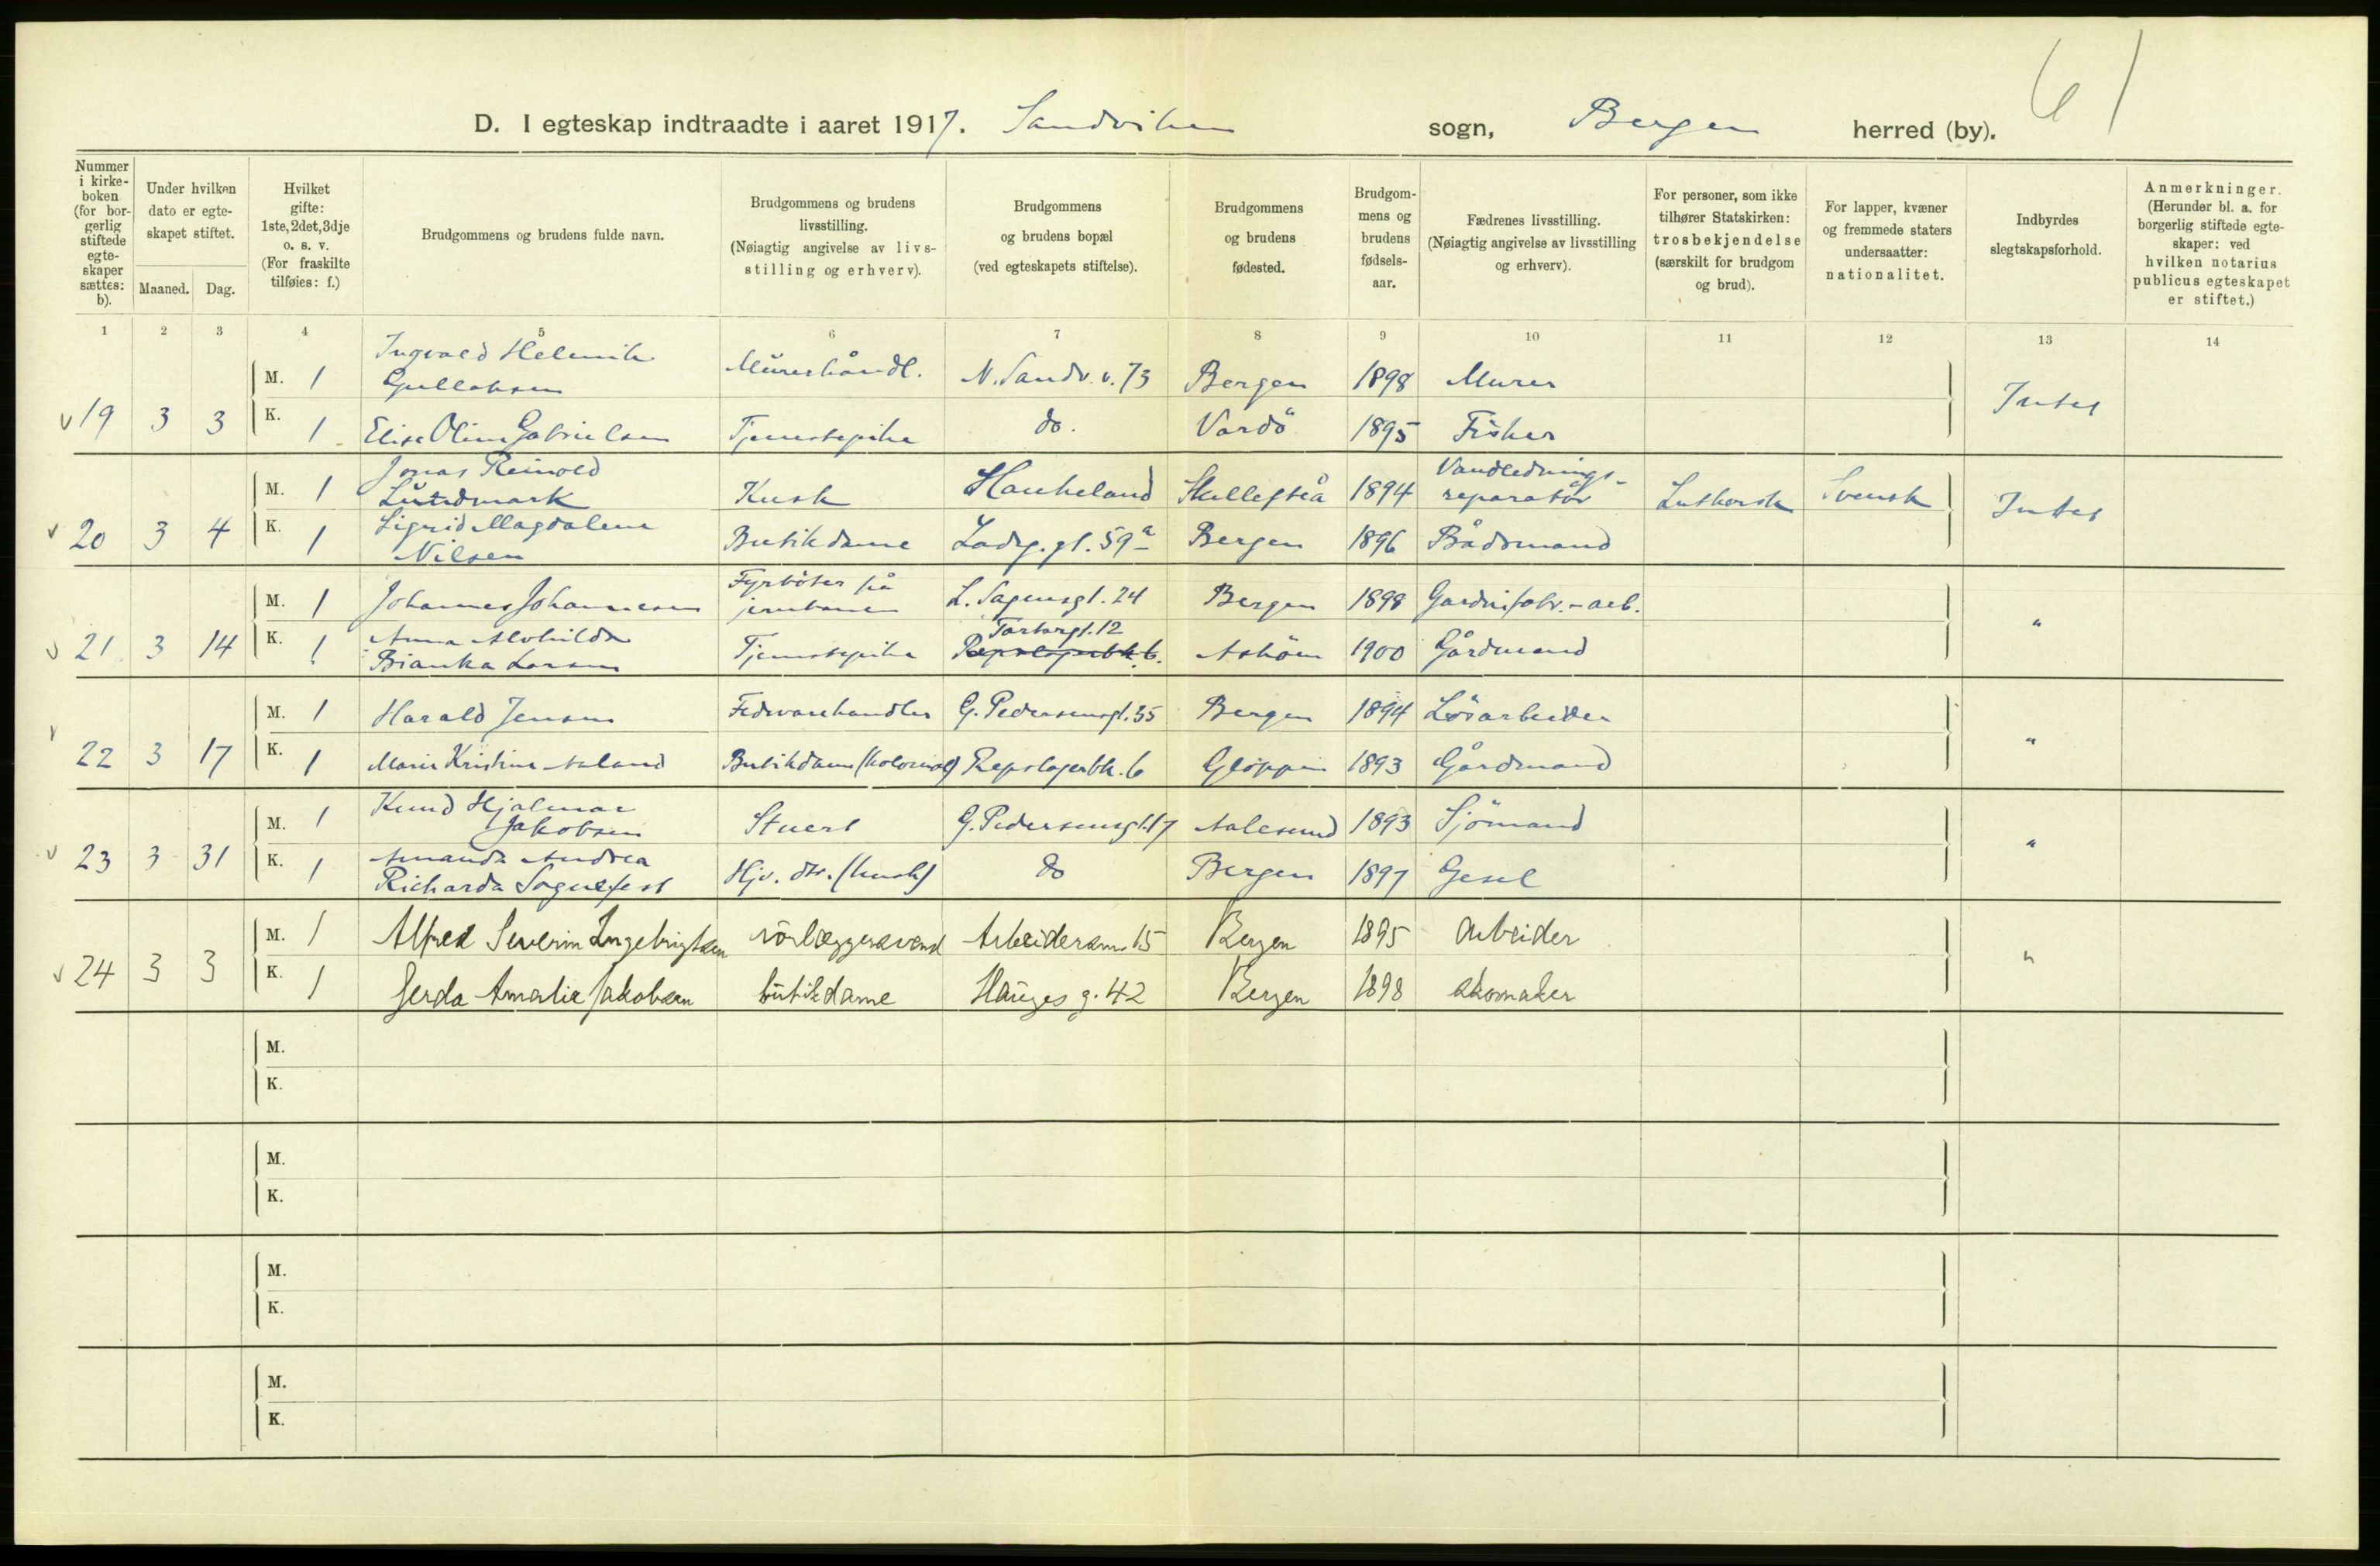 61
D. I egteskap indtraadte i aaret 1917. Sandviken sogn, Bergen herred (by).
Nummer i kirke-boken (for bor-gerlig stiftede egte-skaper sættes: b).
Under hvilken dato er egte-skapet stiftet.
Maaned. Dag.
Hvilket gifte: 1ste, 2det, 3dje o. s. v. (For fraskilte tilføies: f.)
Brudgommens og brudens fulde navn.
Brudgommens og brudens livsstilling. (Nøiagtig angivelse av livs-stilling og erhverv).
Brudgommens og brudens bopæl (ved egteskapets stiftelse).
Brudgommens og brudens fødested.
Brudgom-mens og brudens fødsels-aar.
Fædrenes livsstilling. (Nøiagtig angivelse av livsstilling og erhverv).
For personer, som ikke tilhører Statskirken: trosbekjendelse (særskilt for brudgom og brud).
For lapper, kvæner og fremmede staters undersaatter: nationalitet.
Indbyrdes slegtskapsforhold.
Anmerkninger. (Herunder bl. a. for borgerlig stiftede egte-skaper: ved hvilken notarius publicus egteskapet er stiftet.)
1 2 3 4 5 6 7 8 9 10 11 12 13 14
M. 1 Ingvald Helmik Gulleksen Murerhåndl. N. Sandv. v. 73 Bergen 1898 Murer
v 19 3 3 K. 1 Elise Oline Gabrielsen Tjenestepike do. Vardö 1895 Fisker Intet
M. 1 Jonas Reinold Lundmark Kusk Haukeland Skellefteå 1894 Vandlednings-reparatör Luthersk Svensk
v 20 3 4 K. 1 Sigrid Magdalene Nilsen Butikdame Ladeg. gt. 59a Bergen 1896 Bådsmand Intet
M. 1 Johannes Johannesen Fyrböter på jernbanen L. Sagensgt. 24 Bergen 1898 Gardinfabr.-arb.
v 21 3 14 K. 1 Anna Alvhilda Bianka Larsen Tjenestepike Tartargt. 12 Repslagerbk. 6. Asköen 1900 Gårdmand "
M. 1 Harald Jensen Fedevarehandler G. Pedersensgt. 35 Bergen 1894 Lösarbeider
v 22 3 17 K. 1 Marie Kristine Aaland Butikdame (kolonial) Repslagerbk. 6 Gloppen 1893 Gårdmand "
M. 1 Knud Hjalmar Jakobsen Stuert G. Pedersensgt. 17 Aalesund 1893 Sjömand
v 23 3 31 K. 1 Amanda Andrea Richarda Sognefest Hjv. dtr. (hush) do Bergen 1897 Gesel "
M. 1 Alfred Severin Ingebrigtsen rörlæggersvend Arbeidersm. 15 Bergen 1895 arbeider
v 24 3 3 K. 1 Gerda Amalie Jakobsen butikdame Hauges g. 42 Bergen 1898 skomaker "
M.
K.
M.
K.
M.
K.
M.
K.